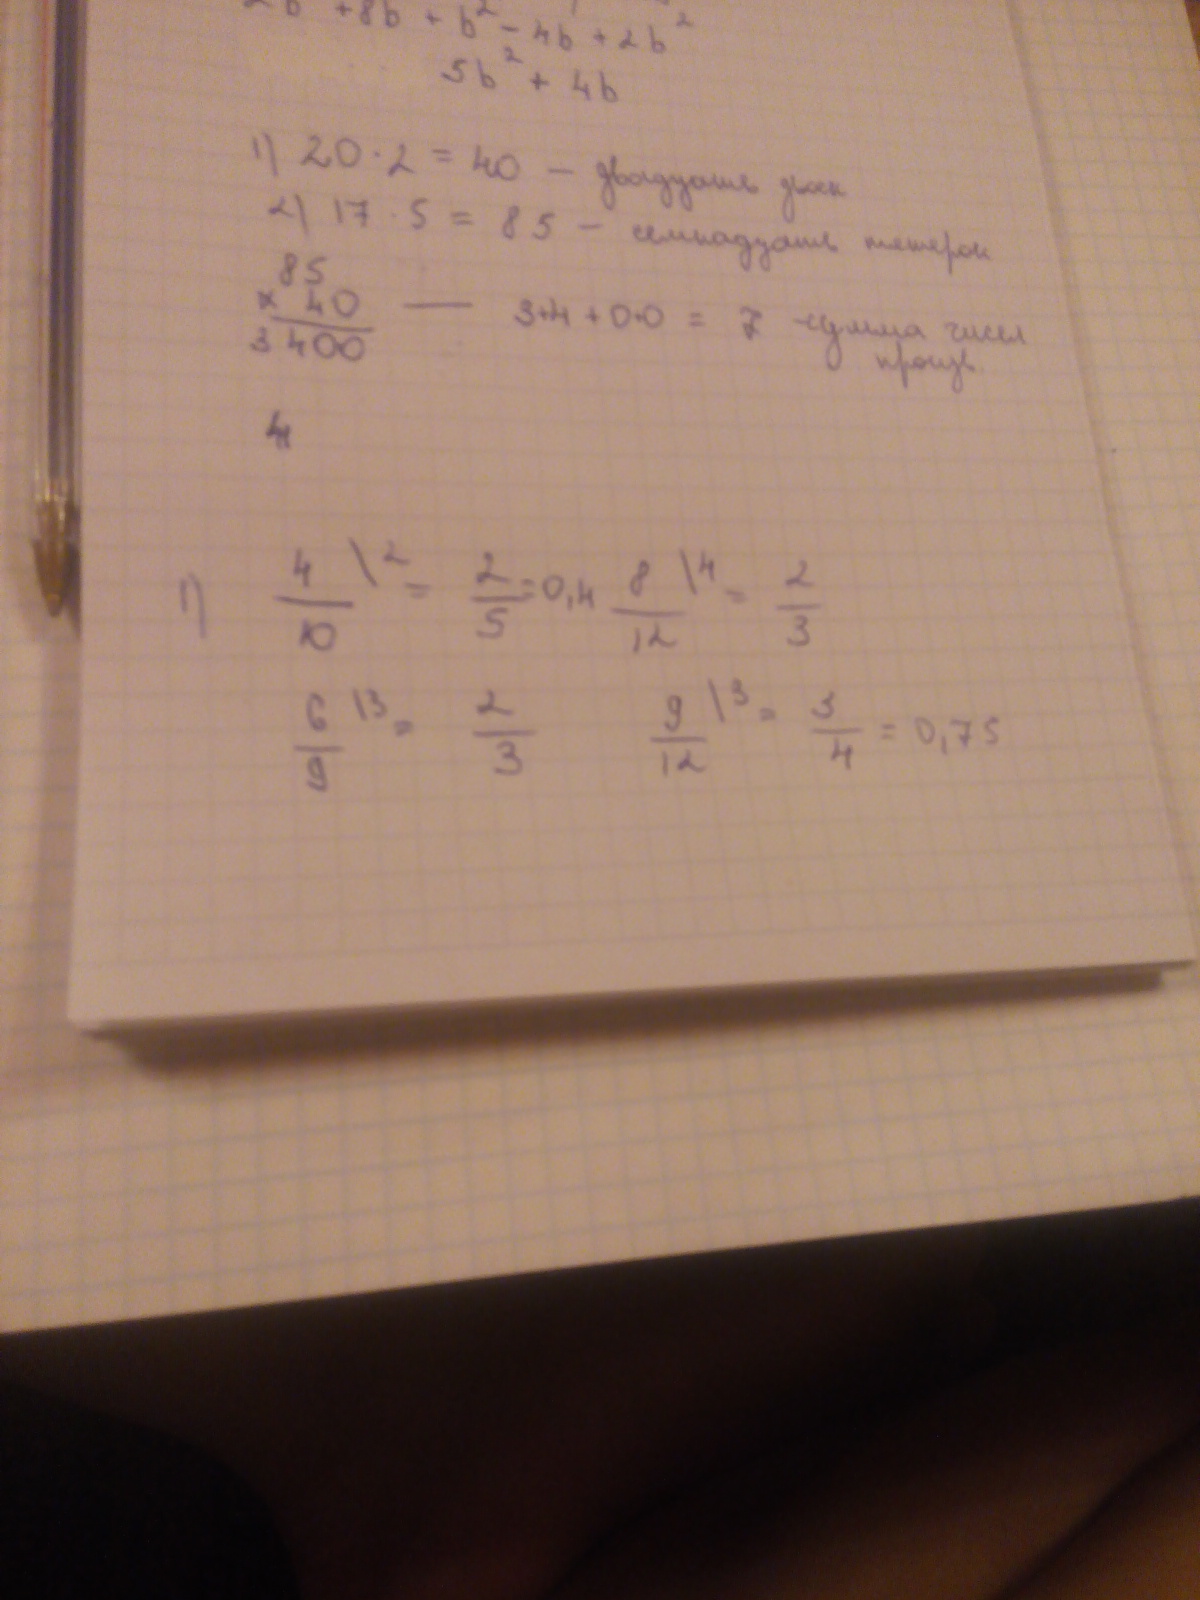 2b +8b + b² - 4b + 2b²
5b² + 4b
1) 20 · 2 = 40 — двадцать двоек
2) 17 · 5 = 85 — семнадцать пятерок
85
× 40 — 3+4+0+0 = 7 - сумма чисел
3400 произв.
4
1) 4/10 \2 = 2/5 = 0,4 8/12 \4 = 2/3
6/9 \3 = 2/3 9/12 \3 = 3/4 = 0,75